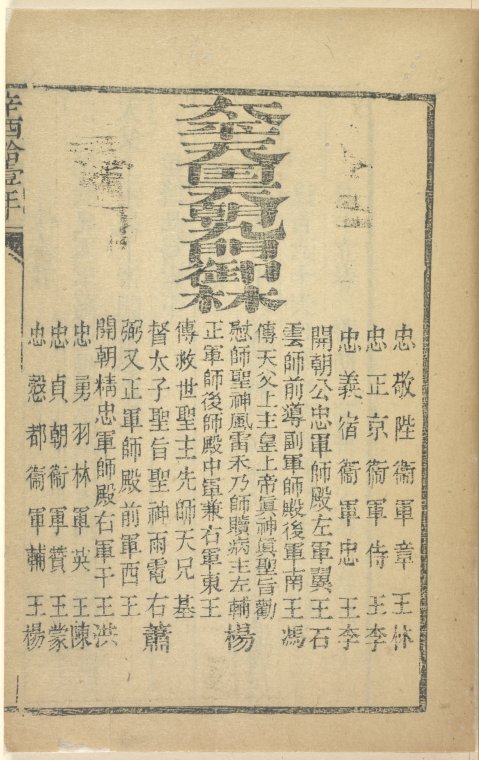 太平天囯天朝九門御林
忠敬陛衞軍章王林
忠正京衞軍侍王李
忠義宿衞軍忠王李
開朝公忠軍師殿左軍翼王石
雲師前導副軍師殿後軍南王馮
傳天父上主皇上帝眞神眞聖旨勸
慰師聖神風雷禾乃師贖病主左輔楊
正軍師後師殿中軍兼右軍東王
傳救世聖主先師天兄基
督太子聖旨聖神雨電右蕭
弼又正軍師殿前軍西王
開朝精忠軍師殿右軍干王洪
忠勇羽林軍英王陳
忠貞朝衞軍贊王蒙
忠愨都衞軍輔王楊
辛酉拾壹年